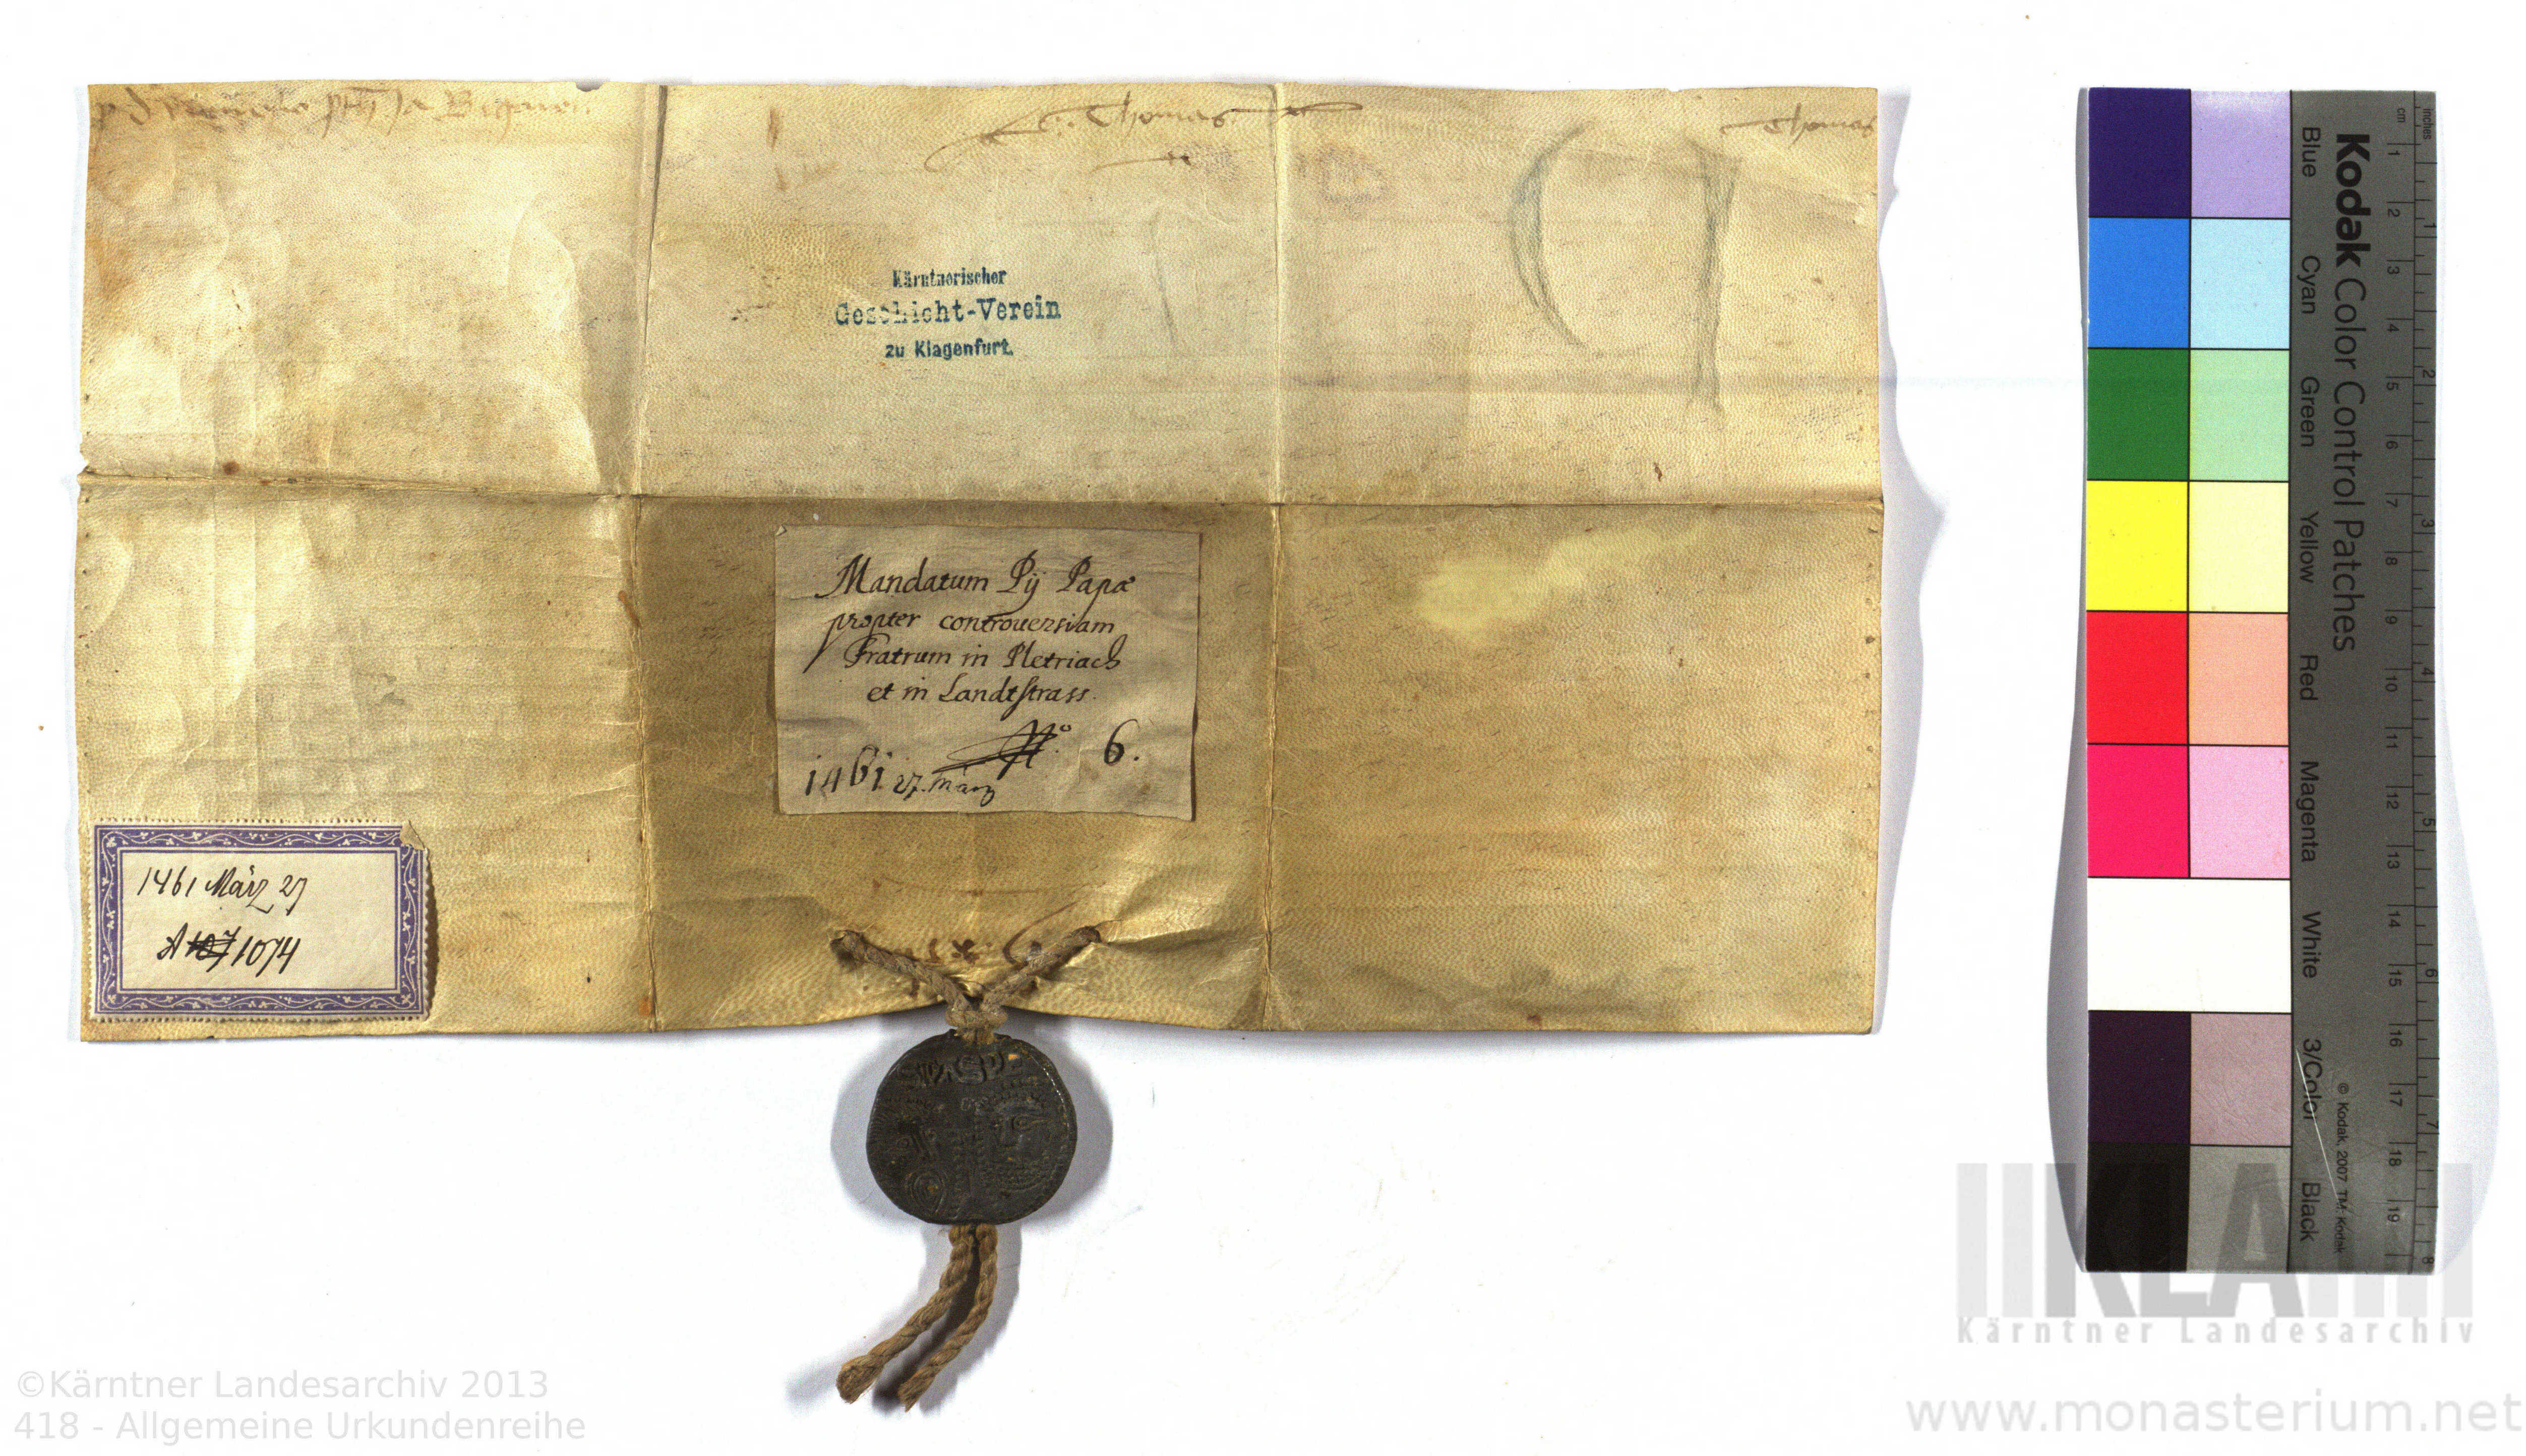 Thomas
Thomas
Kärntnerischer
Geschicht-Verein
zu Klagenfurt.
Mandatum Pij Papæ
propter controuersiam
Fratrum in Pletriach
et in Landtstrass.
No. 6.
1461. 27. März
1461 März 27
A 107 1074
SPASPE
Kodak Color Control Patches
Blue Cyan Green Yellow Red Magenta White 3/Color Black
© Kodak, 2007 TM: Kodak
cm 1 2 3 4 5 6 7 8 9 10 11 12 13 14 15 16 17 18 19
inches 1 2 3 4 5 6 7 8
KLA
Kärntner Landesarchiv
©Kärntner Landesarchiv 2013
418 - Allgemeine Urkundenreihe
www.monasterium.net